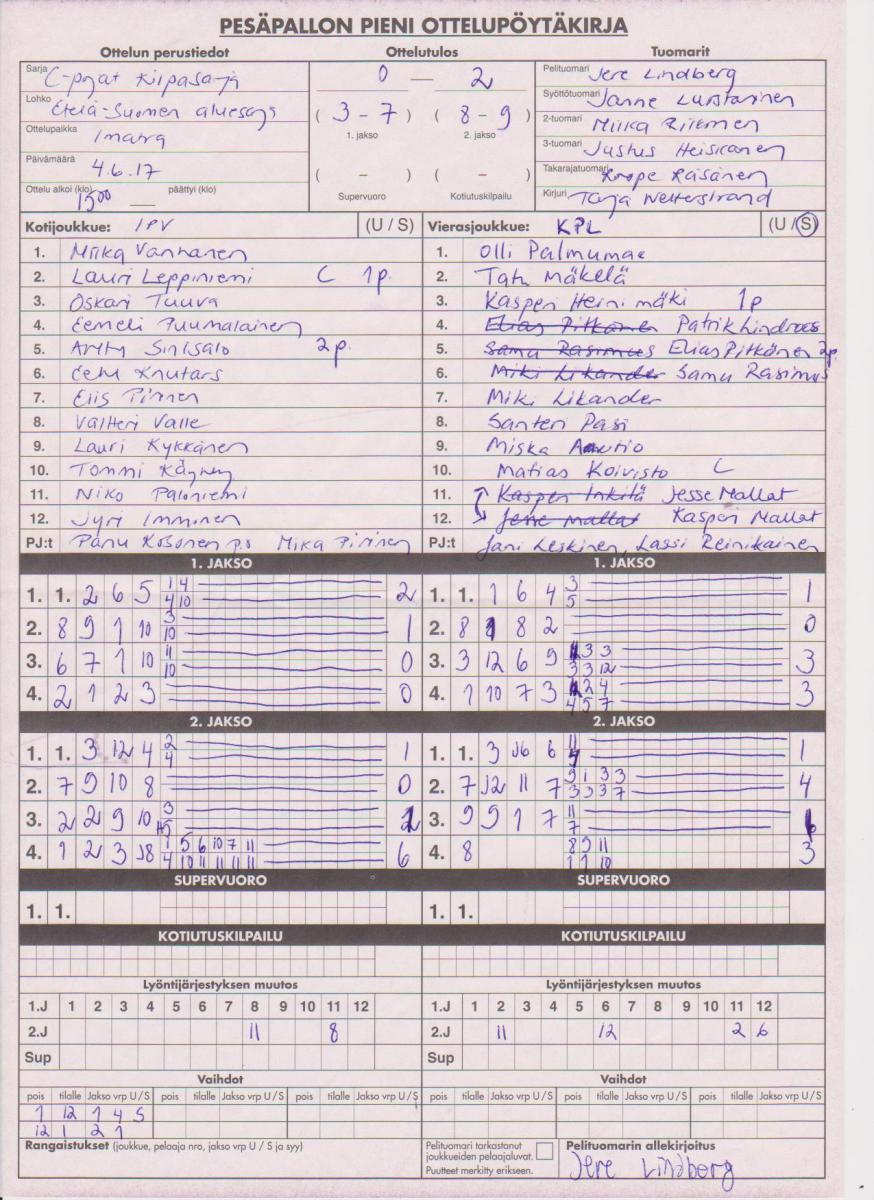 PESÄPALLON PIENI OTTELUPÖYTÄKIRJA
Ottelun perustiedot Ottelutulos Tuomarit
Sarja C-pojat Kilpasarja
Lohko Etelä-Suomen aluesarja
Ottelupaikka Imatra
Päivämäärä 4.6.17
Ottelu alkoi (klo) 1500 päättyi (klo)
0 — 2
( 3 - 7 ) ( 8 - 9 )
1. jakso 2. jakso
( – ) ( – )
Supervuoro Kotiutuskilpailu
Pelituomari Jere Lindberg
Syöttötuomari Janne Luostarinen
2-tuomari Miika Riikonen
3-tuomari Justus Heiskanen
Takarajatuomari Roope Räsänen
Kirjuri Tarja Wetterstrand
Kotijoukkue: IPV (U / S)
1. Miika Vanhanen
2. Lauri Leppiniemi C 1p.
3. Oskari Tuuva
4. Eemeli Puumalainen
5. Arttu Sinisalo 2p.
6. Eetu Knutars
7. Elis Pirinen
8. Valtteri Valle
9. Lauri Kykkänen
10. Tommi Käyhty
11. Niko Paloniemi
12. Jyri Imminen
PJ:t Panu Kosonen p.s Mika Pirinen
Vierasjoukkue: KPL (U / S)
1. Olli Palmumae
2. Tatu Mäkelä
3. Kasperi Heinimäki 1p
4. Elias Pitkänen Patrik Lindroos
5. Samu Rasimus Elias Pitkänen 2p.
6. Miki Likander Samu Rasimus
7. Miki Likander
8. Santeri Pasi
9. Miska Autio
10. Matias Koivisto C
11. Kasperi Inkilä Jesse Mallat
12. Jesse Mallat Kasperi Mallat
PJ:t Jani Leskinen, Lassi Reinikainen
1. JAKSO 1. JAKSO
1. 1. 2 6 5 1 4 2
4 10
2. 8 9 1 10 3 1
10
3. 6 7 1 10 11 0
10
4. 2 1 2 3 0
1. 1. 1 6 4 3 1
5
2. 8 1 8 2 0
3. 3 12 6 9 3 3 3
3 3 12
4. 1 10 7 3 2 4 3
4 5 7
2. JAKSO 2. JAKSO
1. 1. 3 12 4 2 1
4
2. 7 9 10 8 0
3. 2 2 9 10 3 1
4. 1 2 3 J8 1 5 6 10 7 11 6
4 10 11 11 11 11
1. 1. 3 J6 6 11 1
2. 7 J12 11 7 9 1 3 3 4
3 3 3 7
3. 9 9 1 7 11 1
7
4. 8 8 9 11 3
1 1 10
SUPERVUORO SUPERVUORO
1. 1. 1. 1.
KOTIUTUSKILPAILU KOTIUTUSKILPAILU
Lyöntijärjestyksen muutos Lyöntijärjestyksen muutos
1.J 1 2 3 4 5 6 7 8 9 10 11 12 1.J 1 2 3 4 5 6 7 8 9 10 11 12
2.J 11 8 2.J 11 12 2 6
Sup Sup
Vaihdot Vaihdot
pois tilalle Jakso vrp U / S pois tilalle Jakso vrp U / S pois tilalle Jakso vrp U / S pois tilalle Jakso vrp U / S pois tilalle Jakso vrp U / S pois tilalle Jakso vrp U / S
1 12 1 4 S
12 1 2 1
Rangaistukset (joukkue, pelaaja nro, jakso vrp U / S ja syy)
Pelituomari tarkastanut
joukkueiden pelaajaluvat.
Puutteet merkitty erikseen.
Pelituomarin allekirjoitus
Jere Lindberg